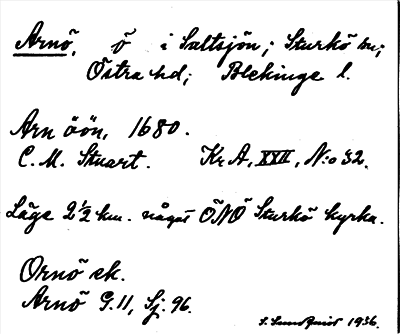 Arnö, ö i Saltsjön; Sturkö sn;
Östra hd; Blekinge l.
Arn öön, 1680.
C. M. Stuart. Kr A, XXII, N:o 32.
Läge 2½ km. något ÖNÖ Sturkö kyrka.
Ornö ek.
Arnö G. 11, Sj. 96.
1936.